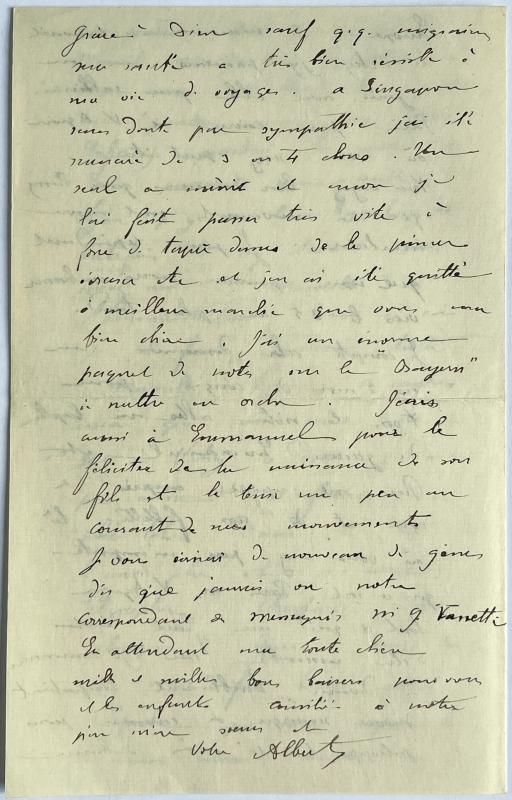 Grâce à Dieu sauf q.q. migraines
ma santé a très bien résisté à
ma vie de voyages. a Singapour
sans doute par sympathie j'ai été
menacé de 3 ou 4 clous. Un
seul a mûrit et encore je
l'ai fait passer très vite à
force de taper dessus de le pincer
écraser etc et j'en ai été quitte
à meilleur marché que vous ma
bien chère. J'ai un énorme
paquet de notes sur le "Brayern"
à mettre en ordre. J'écris
aussi à Emmanuel pour le
féliciter de la naissance de son
fils et le tenir un peu au
courant de mes mouvements
Je vous écrirai de nouveau de Gênes
dès que j'aurais vu notre
correspondant de messageries mr J Vanetti
En attendant ma toute chère
mille et milles bons baisers pour vous
et les enfants amitiés à votre
père mère soeurs et
Votre Albert